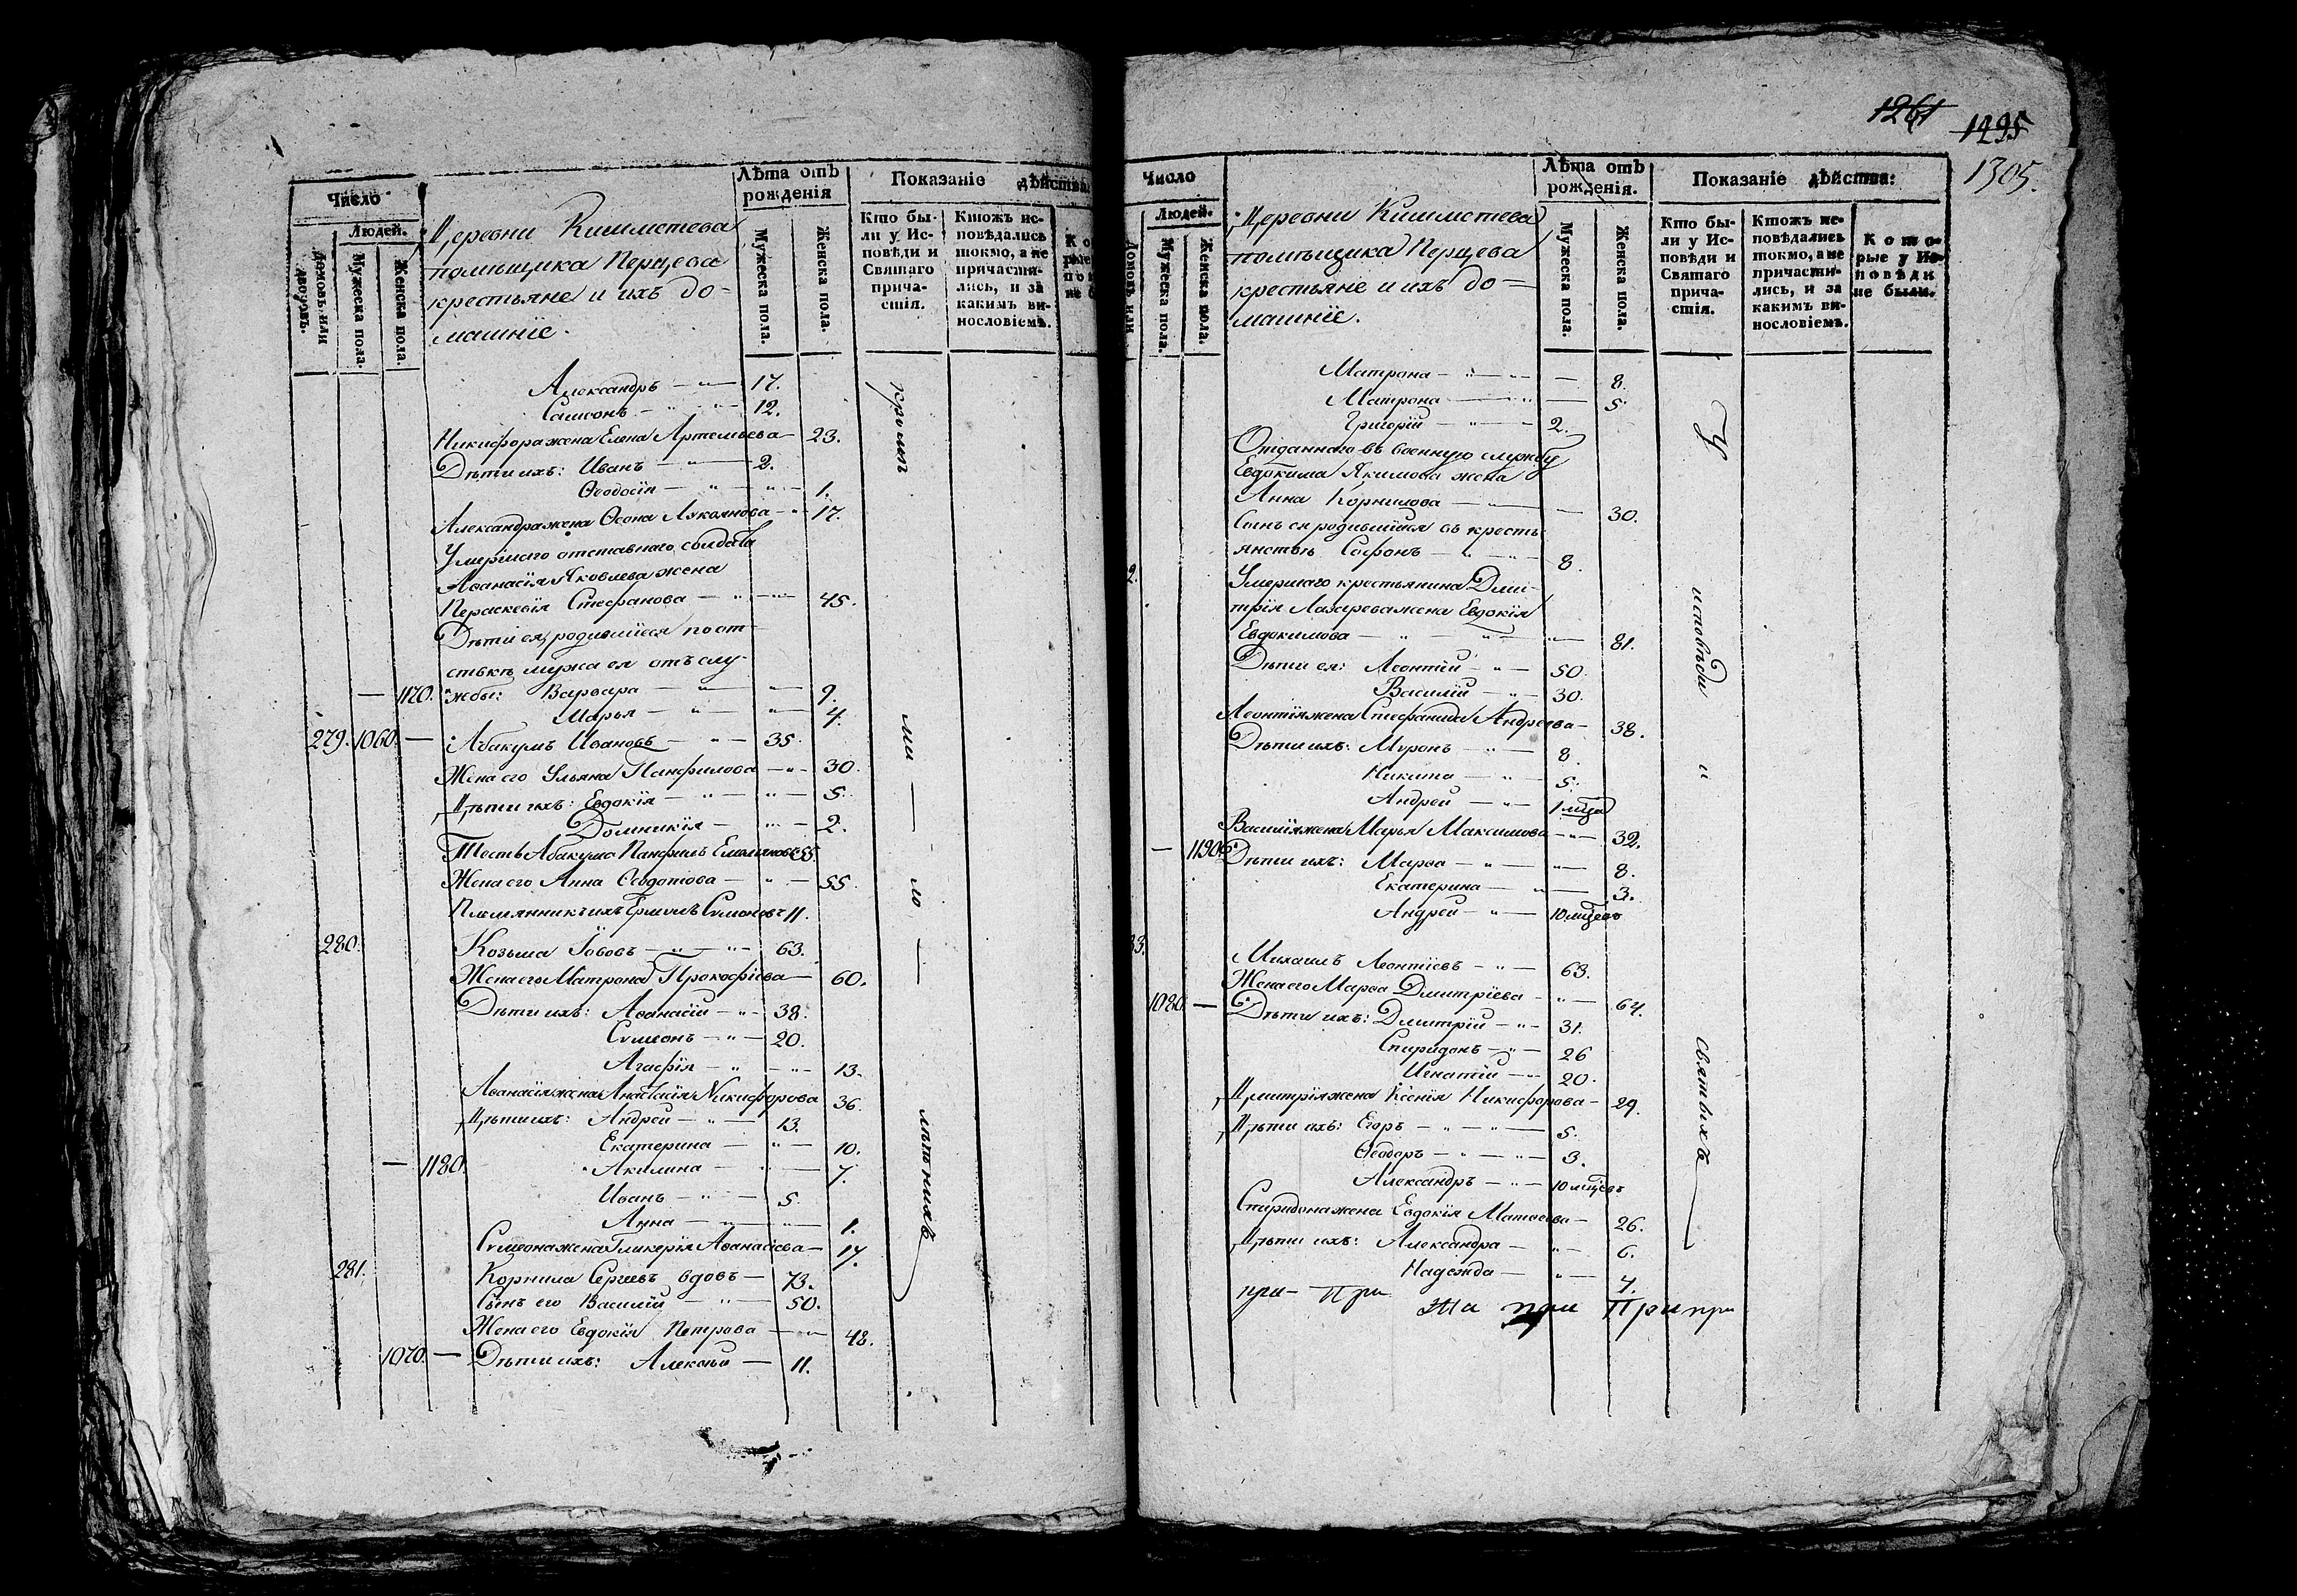 Число
Людей.
Домовъ или дворовъ.
Мужеска пола.
Женска пола.
Деревни Кишмстева
помѣщика Перцева
крестьяне и ихъ до=
машніе.
Лѣта отъ рожденія
Мужеска пола.
Женска пола.
Показаніе дѣйства:
Кто бы-
ли у Ис-
повѣди и
Святаго
прича-
стія.
Ктожъ ис-
повѣдались
токмо, а не
причасти-
лись, и за
какимъ ви-
нословіемъ.
Александръ — " — 17.
Самсонъ — " — " — 12.
Никифора жена Елена Артемьева — 23.
Дѣти ихъ: Иванъ — " — 2.
Ѳеодосія — " — " — 1.
Александра жена Ѳеона Лукоянова — " 17.
Умершаго отставнаго солдата
Аѳанасія Яковлева жена
Параскевія Стефанова — " — " — 45.
Дѣти ея, родившіеся по от-
ставкѣ мужа ея отъ слу-
— 1170. жбы: Варвара — " — " — 9.
Марья — " — " — 4.
279. 1060. — Абакумъ Ивановъ — " — 35.
Жена его Ульяна Панфилова — " — 30.
Дѣти ихъ: Евдокія — " — " — 5.
Домникія — " — 2.
Тесть Абакума Панфилъ Емельяновъ 55.
Жена его Анна Ѳедотова — " — 55.
Племянникъ ихъ Ермилъ Сѵмоновъ 11.
280. Козьма Іововъ — " — " — 63.
Жена его Матрона Прокофіева — 60.
Дѣти ихъ: Аѳанасій — " — 38.
Сѵмеонъ — " — 20.
Агафія — " — " — 13.
Аѳанасія жена Анастасія Никифорова 36.
Дѣти ихъ: Андрей — " — 13.
Екатерина — " — 10.
— 1180. Акилина — " — 7.
Иванъ — " — 5.
Анна — " — " — 1.
Сѵмеона жена Гликерія Аѳанасіева — 17.
281. Корнила Сергеевъ вдовъ — 73.
Сынъ его Василій — " — 50.
Жена его Евдокія Петрова — " — 48.
1070. — Дѣти ихъ: Алексѣй — 11.
ми — ло — лѣтнихъ
1261
1295
1305.
Число
Людей.
Домовъ или
Мужеска пола.
Женска пола.
Деревни Кишмстева
помѣщика Перцева
крестьяне и ихъ до=
машніе.
Лѣта отъ рожденія.
Мужеска пола.
Женска пола.
Показаніе дѣйства:
Кто бы-
ли у Ис-
повѣди и
Святаго
прича-
стія.
Ктожъ ис-
повѣдались
токмо, а не
причасти-
лись, и за
какимъ ви-
нословіемъ.
Кото-
рые у Ис-
повѣди
не были.
Матрона — " — " — 8.
Матрона — " — 5.
Григорій — " — 2.
Отданнаго въ военную службу
Евдокима Якимова жена
Анна Корнилова — " — 30.
Сынъ ея родившійся въ кресть-
янствѣ Софонъ — " — " — 8.
2. Умершаго крестьянина Дми-
трія Лазарева жена Евдокія
Евдокимова — " — " — 81.
Дѣти ея: Леонтій — " — 50.
Василій — " — 30.
Леонтія жена Стефанида Андреева — 38.
Дѣти ихъ: Мѵронъ — " — 8.
Никита — " — 5.
Андрей — " — 1 мца
Василія жена Марья Максимова — " — 32.
— 1190. Дѣти ихъ: Марѳа — " — " — 8.
Екатерина — " — 3.
Андрей — " — 10 мцевъ
33. Михаилъ Леонтіевъ — " — 63.
Жена его Марѳа Дмитріева — " — 64.
1080. — Дѣти ихъ: Дмитрій — " — 31.
Спиридонъ — " — 26
Игнатій — " — 20.
Дмитрія жена Ксенія Никифорова — 29.
Дѣти ихъ: Егоръ — " — " — 5.
Ѳеодоръ — " — " — 3.
Александръ — " — 10 мцевъ
Спиридона жена Евдокія Матѳеева — 26.
Дѣти ихъ: Александра — " — 6.
Надежда — " — 4.
при — При при При при
У исповѣди и святыхъ